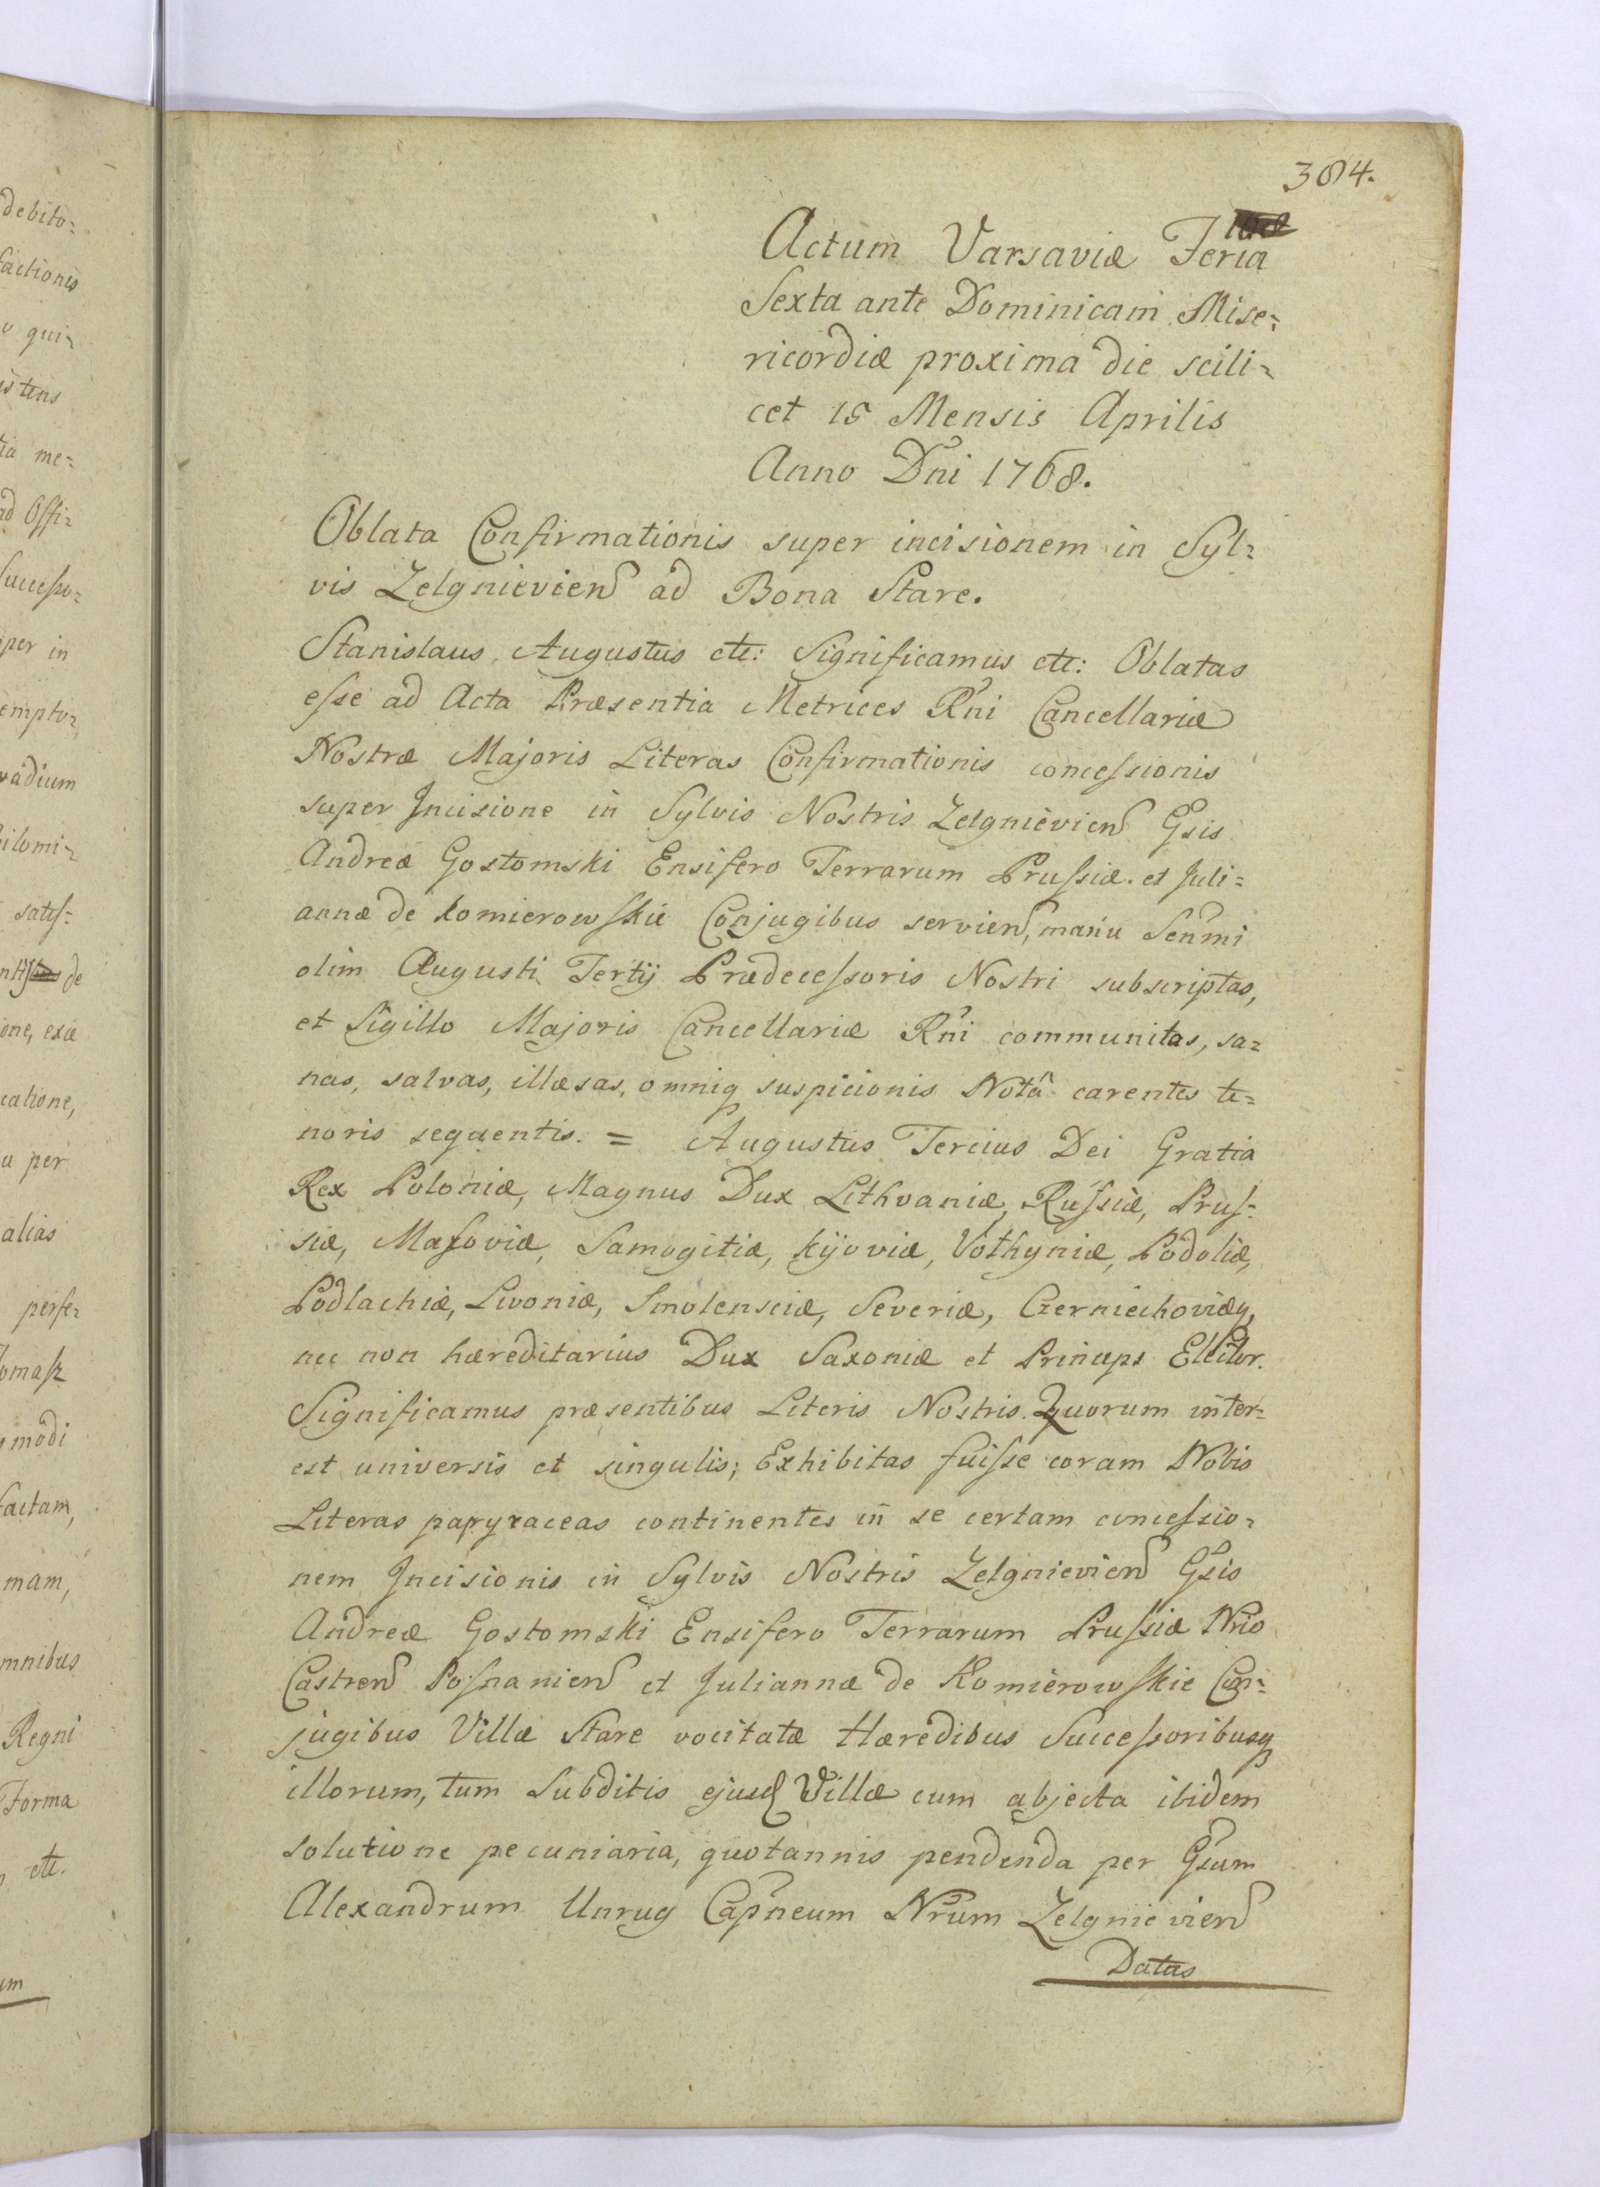 debito=
factionis
o qui=
istens
tia me=
ad Offi=
Successo=
per in
empto=
vadium
satisf=
de
ione, exae
catione,
a per
alias
perfe=
Tomasz
modi
factam,
mam,
omnibus
Regni
Forma
etc.
um
384.
Actum Varsaviæ Feria
Sexta ante Dominicam Mise=
ricordiæ proxima die scili=
cet 15 Mensis Aprilis
Anno Dni 1768.
Oblata Confirmationis super incisionem in Syl=
vis Zelgnievien ad Bona Stare.
Stanislaus Augustus etc: Significamus etc: Oblatas
esse ad Acta Præsentia Metrices Rni Cancellariæ
Nostræ Majoris Literas Confirmationis concessionis
super Incisione in Sylvis Nostris Zelgnievien Gsis
Andreæ Gostomski Ensifero Terrarum Prussiæ et Juli=
annæ de Komierowskie Conjugibus servien, manu Senmi
olim Augusti Tertij Prædecessoris Nostri subscriptas,
et Sigillo Majoris Cancellariæ Rni communitas, sa=
nas, salvas, illæsas, omniq suspicionis Notâ carentes te=
noris sequentis. = Augustus Tercius Dei Gratia
Rex Poloniæ, Magnus Dux Lithvaniæ, Russiæ, Prus=
siæ, Masoviæ, Samogitiæ, Kijoviæ, Volhyniæ, Podoliæ,
Podlachiæ, Livoniæ, Smolensciæ, Severiæ, Czerniechoviæq,
nec non hæreditarius Dux Saxoniæ et Princeps Elector.
Significamus præsentibus Literis Nostris Quorum inter=
est universis et singulis; Exhibitas fuisse coram Nobis
Literas papyraceas continentes in se certam concessio=
nem Incisionis in Sylvis Nostris Zelgnievien Gsis
Andreæ Gostomski Ensifero Terrarum Prussiæ Nrio
Castren Posnanien et Juliannæ de Komierowskie Con=
jugibus Villæ Stare vocitatæ Hæredibus Successoribusq
illorum, tum Subditis ejusd Villæ cum abjecta ibidem
solutione pecuniaria, quotannis pendenda per Gsum
Alexandrum Unrug Capneum Nrum Zelgnievien
Datas